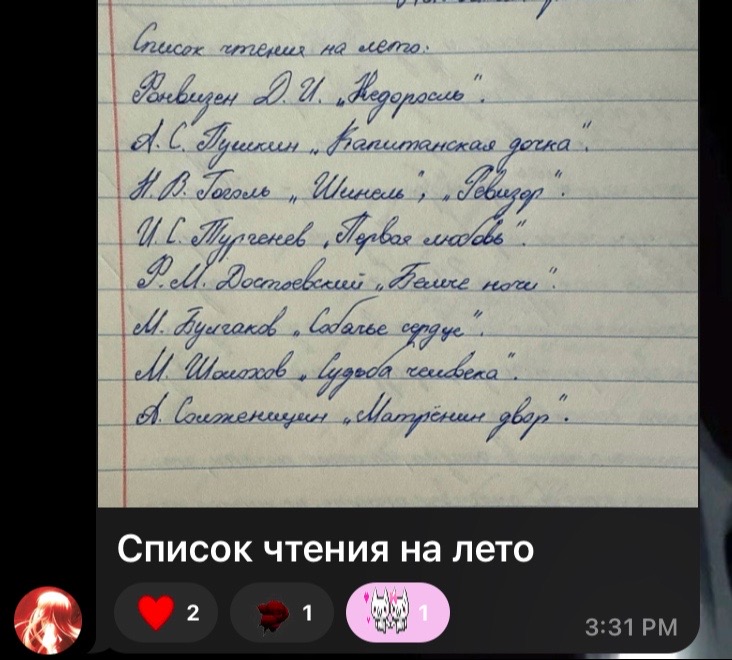 Список чтения на лето:
Фонвизен Д. И. „Недоросль".
А. С. Пушкин „Капитанская дочка".
Н. В. Гоголь „Шинель", „Ревизор".
И. С. Тургенев „Первая любовь".
Ф. М. Достоевский „Белые ночи".
М. Булгаков „Собачье сердце".
М. Шолохов „Судьба человека".
А. Солженицин „Матрёнин двор".
Список чтения на лето
2
1
1
3:31 PM